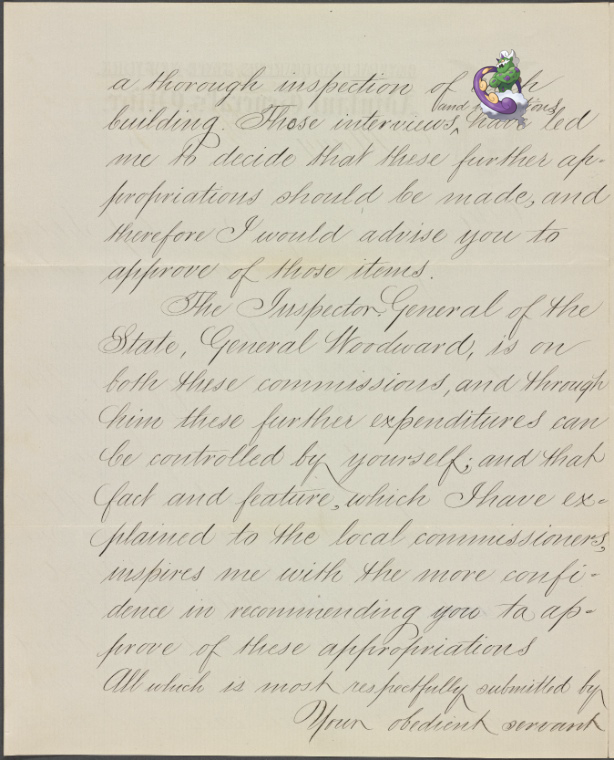 a thorough inspection of
building. Those interviews, and have led
me to decide that these further ap-
propriations should be made, and
therefore I would advise you to
approve of those items.
The Inspector General of the
State, General Woodward, is on
both these commissions, and through
him these further expenditures can
be controlled by yourself; and that
fact and feature, which I have ex-
plained to the local commissioners,
inspires me with the more confi-
dence in recommending you to ap-
prove of these appropriations
All which is most respectfully submitted by
Your obedient servant